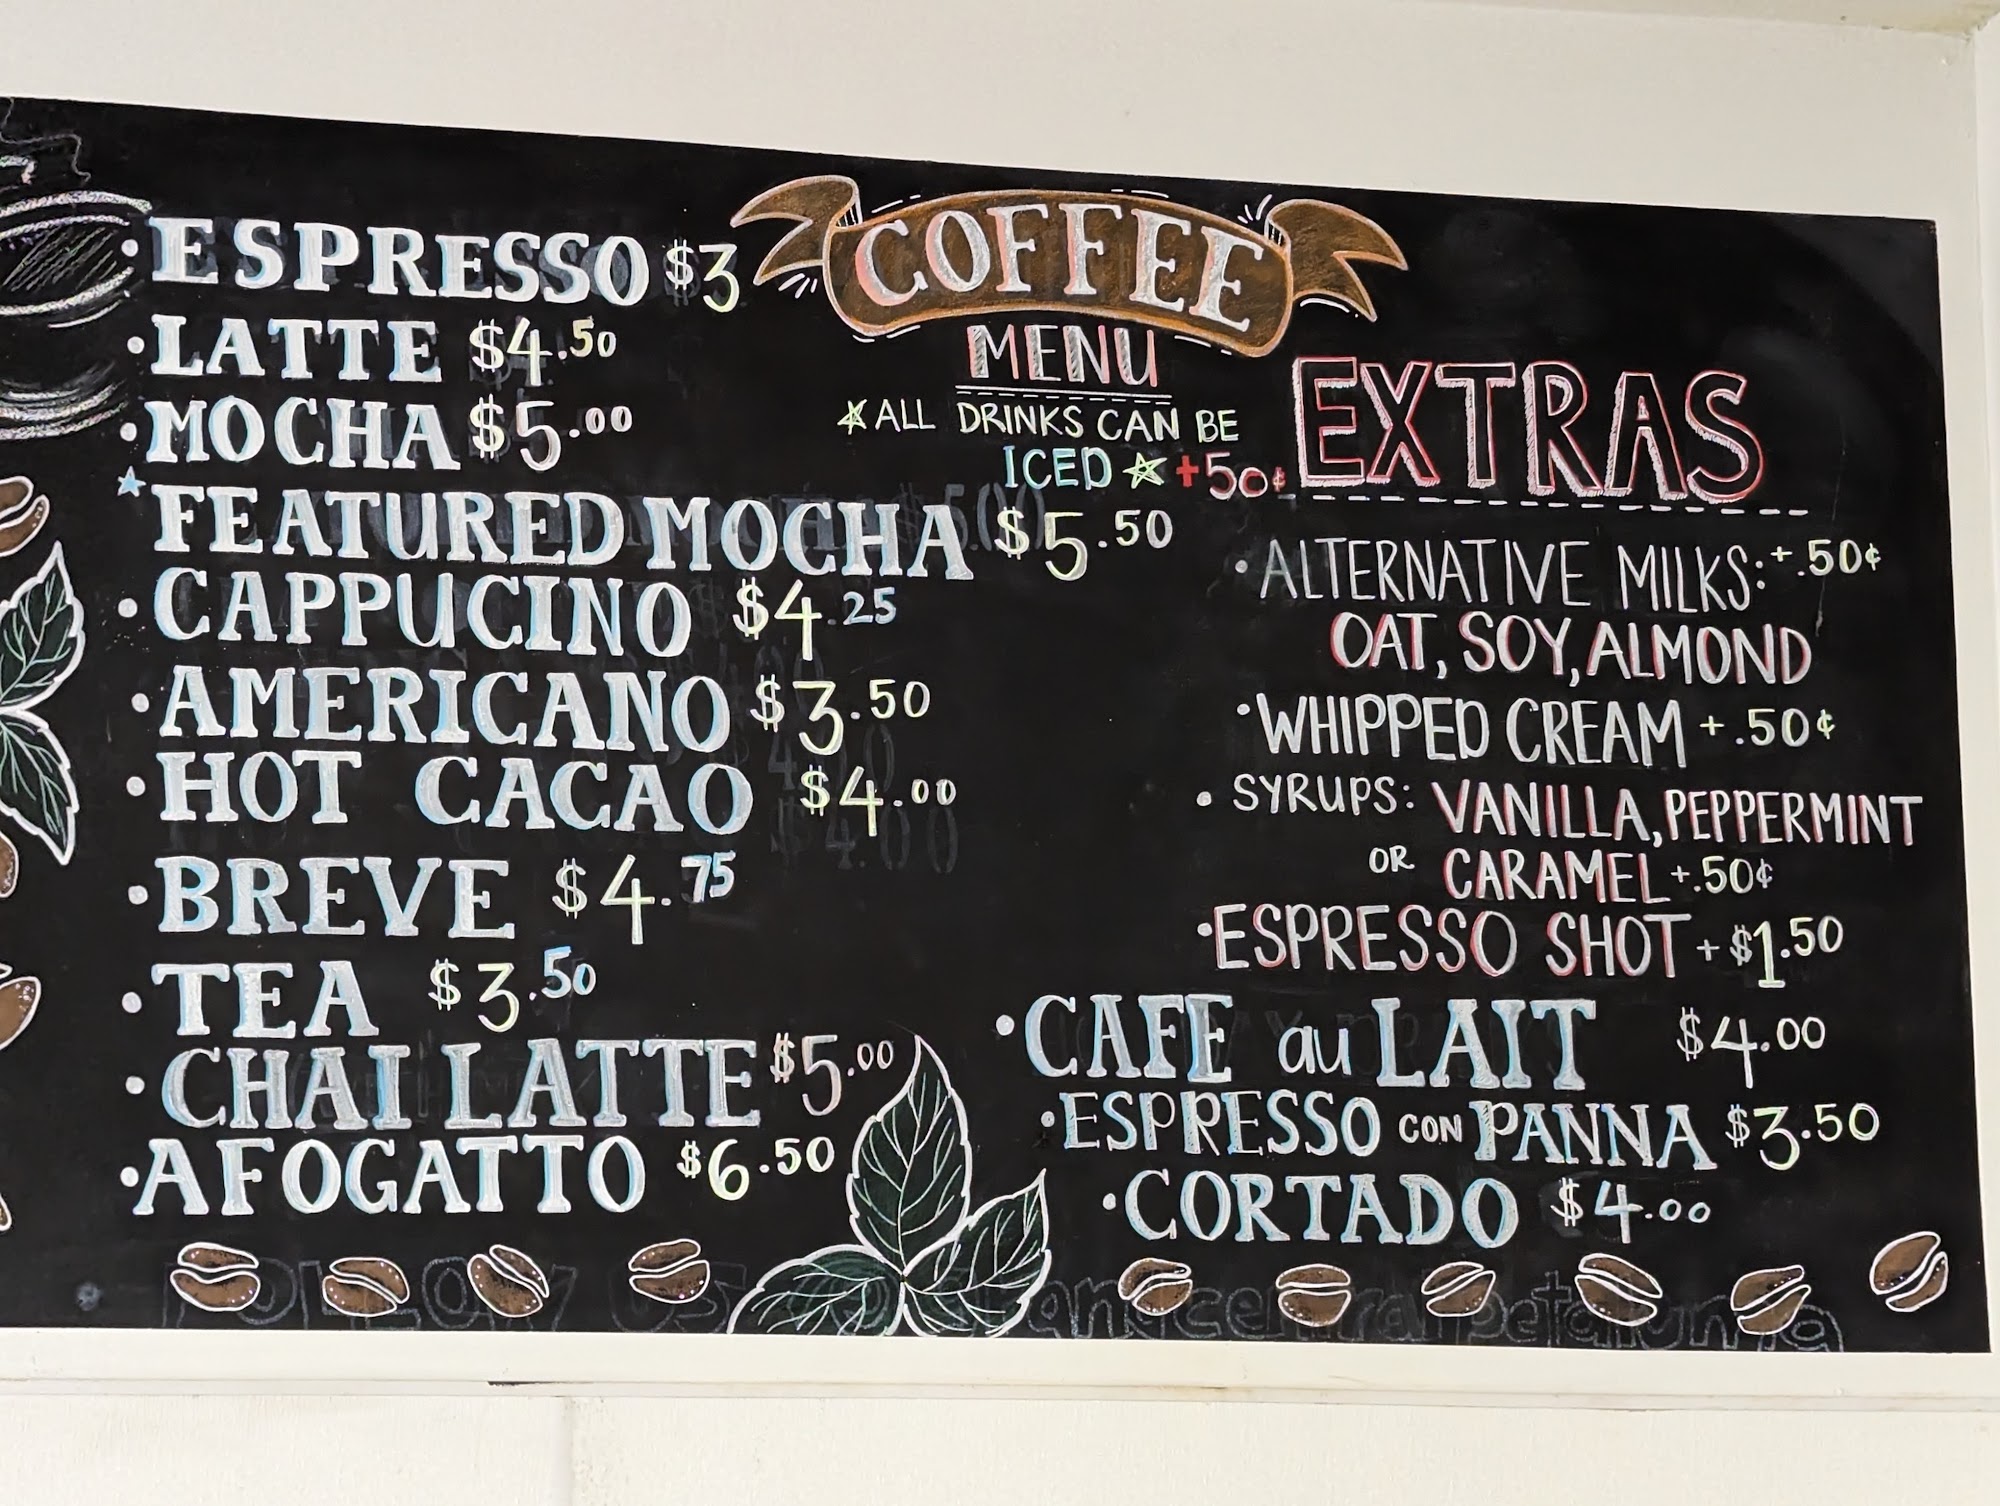 COFFEE
MENU
★ALL DRINKS CAN BE
ICED ★ +50¢
·ESPRESSO $3
·LATTE $4.50
·MOCHA $5.00
★FEATURED MOCHA $5.50
·CAPPUCINO $4.25
·AMERICANO $3.50
·HOT CACAO $4.00
·BREVE $4.75
·TEA $3.50
·CHAI LATTE $5.00
·AFOGATTO $6.50
EXTRAS
·ALTERNATIVE MILKS: +.50¢
OAT, SOY, ALMOND
·WHIPPED CREAM +.50¢
·SYRUPS: VANILLA, PEPPERMINT
OR CARAMEL +.50¢
·ESPRESSO SHOT +$1.50
·CAFE au LAIT $4.00
·ESPRESSO CON PANNA $3.50
·CORTADO $4.00